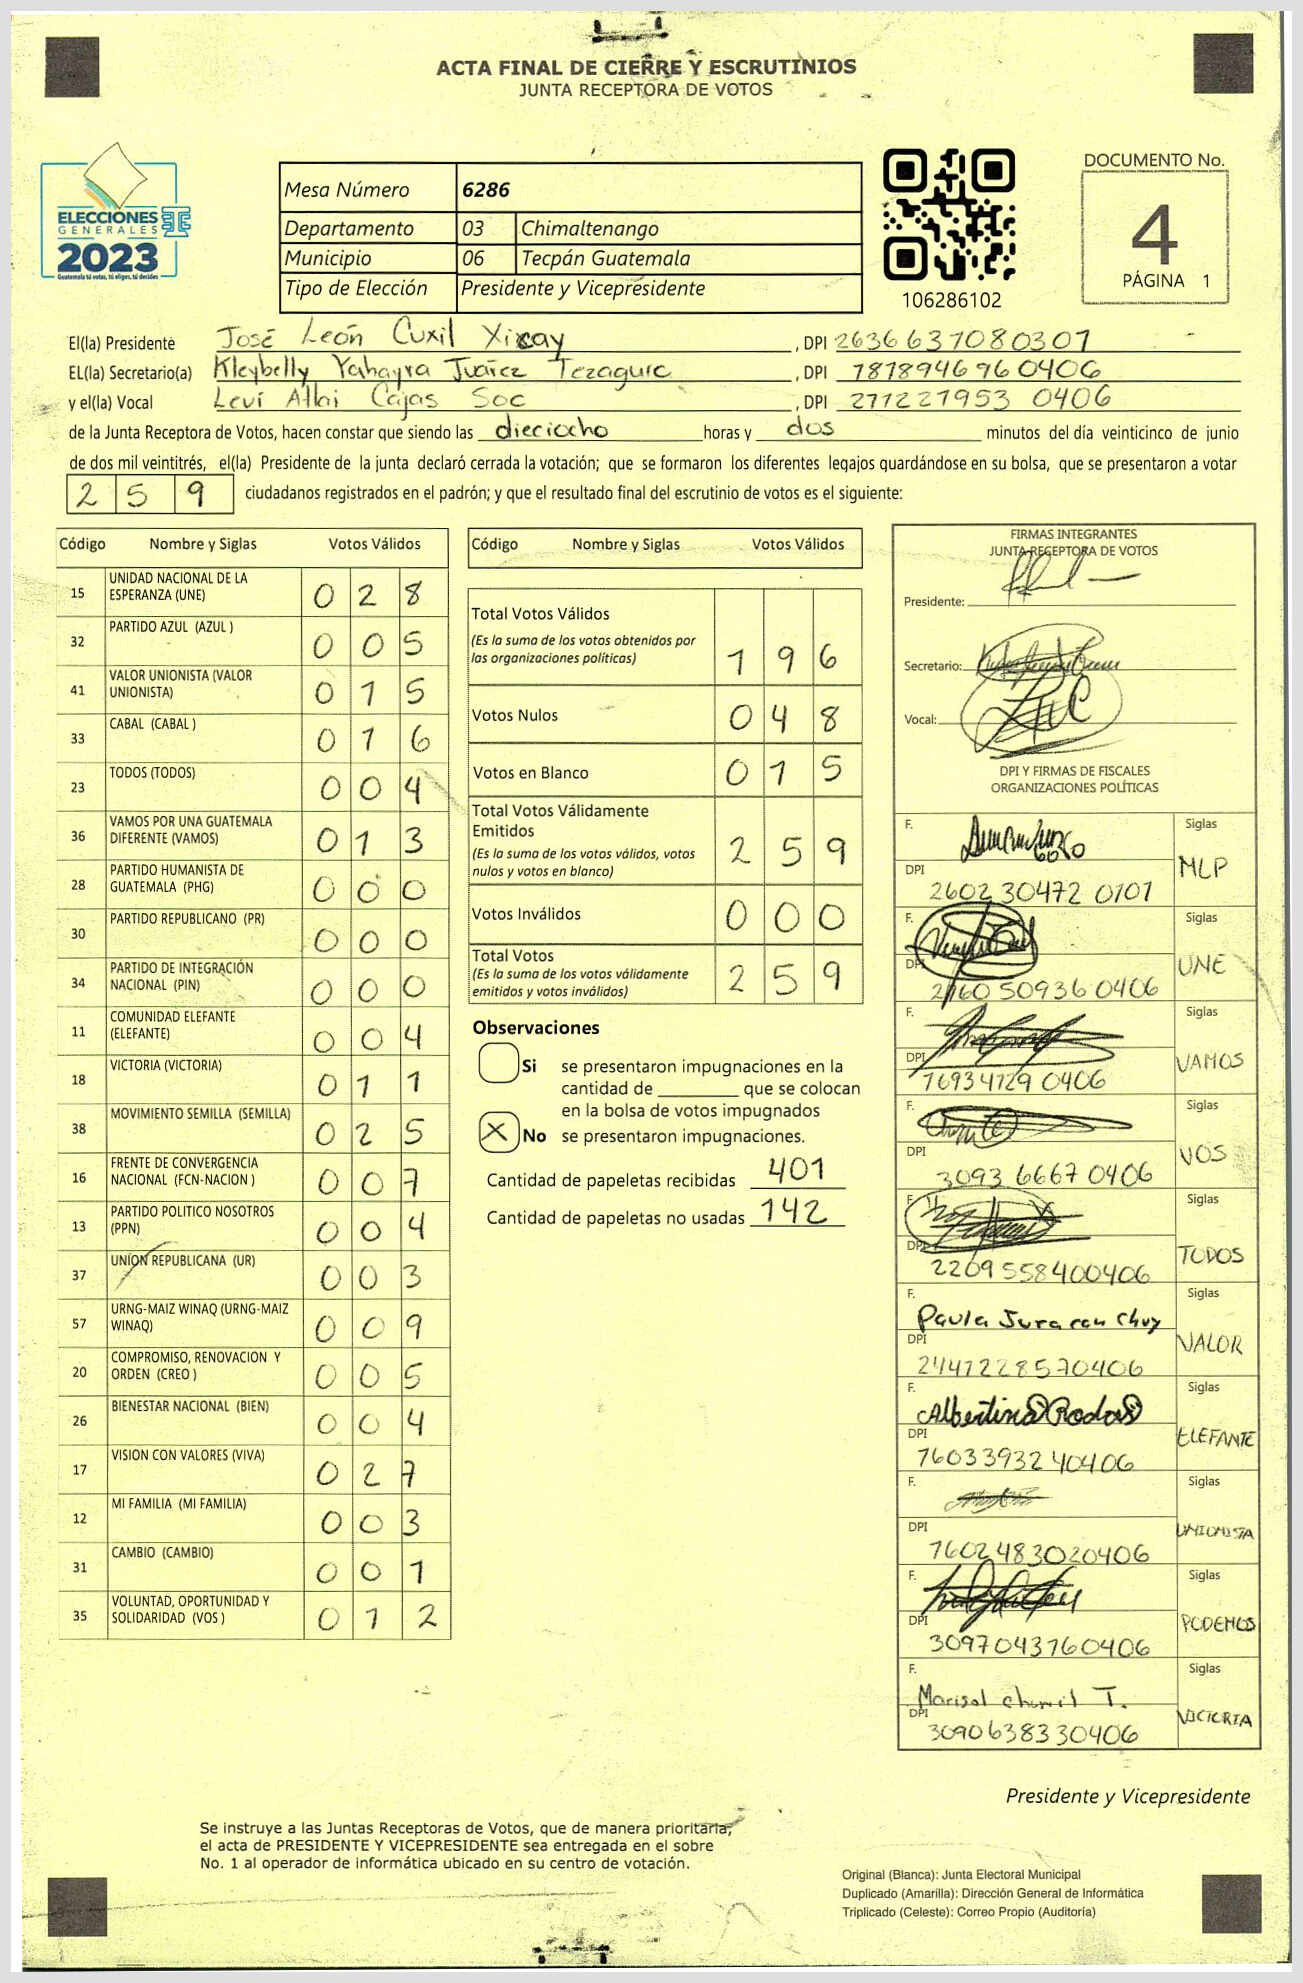 ACTA FINAL DE CIERRE Y ESCRUTINIOS
JUNTA RECEPTORA DE VOTOS
ELECCIONES
GENERALES
2023
Guatemala tú votas, tú eliges, tú decides
Mesa Número 6286
Departamento 03 Chimaltenango
Municipio 06 Tecpán Guatemala
Tipo de Elección Presidente y Vicepresidente
106286102
DOCUMENTO No.
4
PÁGINA 1
El(la) Presidente José León Cuxil Xicay, DPI 2636637080307
EL(la) Secretario(a) Kleybelly Yahayra Juárez Tezaguic, DPI 7878946960406
y el(la) Vocal Leví Cajas Soc, DPI 277227953 0406
de la Junta Receptora de Votos, hacen constar que siendo las dieciocho horas y dos minutos del día veinticinco de junio
de dos mil veintitrés, el(la) Presidente de la junta declaró cerrada la votación; que se formaron los diferentes legajos guardándose en su bolsa, que se presentaron a votar
2 5 9 ciudadanos registrados en el padrón; y que el resultado final del escrutinio de votos es el siguiente:
Código Nombre y Siglas Votos Válidos
15 UNIDAD NACIONAL DE LA ESPERANZA (UNE) 0 2 8
32 PARTIDO AZUL (AZUL ) 0 0 5
41 VALOR UNIONISTA (VALOR UNIONISTA) 0 1 5
33 CABAL (CABAL ) 0 1 6
23 TODOS (TODOS) 0 0 4
36 VAMOS POR UNA GUATEMALA DIFERENTE (VAMOS) 0 1 3
28 PARTIDO HUMANISTA DE GUATEMALA (PHG) 0 0 0
30 PARTIDO REPUBLICANO (PR) 0 0 0
34 PARTIDO DE INTEGRACIÓN NACIONAL (PIN) 0 0 0
11 COMUNIDAD ELEFANTE (ELEFANTE) 0 0 4
18 VICTORIA (VICTORIA) 0 1 1
38 MOVIMIENTO SEMILLA (SEMILLA) 0 2 5
16 FRENTE DE CONVERGENCIA NACIONAL (FCN-NACION ) 0 0 7
13 PARTIDO POLITICO NOSOTROS (PPN) 0 0 4
37 UNION REPUBLICANA (UR) 0 0 3
57 URNG-MAIZ WINAQ (URNG-MAIZ WINAQ) 0 0 9
20 COMPROMISO, RENOVACION Y ORDEN (CREO ) 0 0 5
26 BIENESTAR NACIONAL (BIEN) 0 0 4
17 VISION CON VALORES (VIVA) 0 2 7
12 MI FAMILIA (MI FAMILIA) 0 0 3
31 CAMBIO (CAMBIO) 0 0 1
35 VOLUNTAD, OPORTUNIDAD Y SOLIDARIDAD (VOS ) 0 1 2
Código Nombre y Siglas Votos Válidos
Total Votos Válidos
(Es la suma de los votos obtenidos por
las organizaciones políticas) 1 9 6
Votos Nulos 0 4 8
Votos en Blanco 0 1 5
Total Votos Válidamente
Emitidos
(Es la suma de los votos válidos, votos
nulos y votos en blanco) 2 5 9
Votos Inválidos 0 0 0
Total Votos
(Es la suma de los votos válidamente
emitidos y votos inválidos) 2 5 9
Observaciones
Si se presentaron impugnaciones en la
cantidad de ________ que se colocan
en la bolsa de votos impugnados
X No se presentaron impugnaciones.
Cantidad de papeletas recibidas 401
Cantidad de papeletas no usadas 142
FIRMAS INTEGRANTES
JUNTA RECEPTORA DE VOTOS
Presidente:
Secretario:
Vocal:
DPI Y FIRMAS DE FISCALES
ORGANIZACIONES POLÍTICAS
F. Siglas
DPI MLP
2602 30472 0101
F. Siglas
DPI UNE
2160 50936 0406
F. Siglas
DPI VAMOS
76934729 0406
F. Siglas
DPI VOS
3093 6667 0406
F. Siglas
DPI TODOS
2209558400406
F. Paula Juracan Chuy Siglas
DPI VALOR
2447228570406
F. Siglas
Albertina Rodas
DPI ELEFANTE
7603393240406
F. Siglas
DPI UNIONISTA
7602483020406
F. Siglas
DPI PODEMOS
3097043760406
F. Siglas
Marisol Chumil T.
DPI VICTORIA
3090638330406
Presidente y Vicepresidente
Se instruye a las Juntas Receptoras de Votos, que de manera prioritaria,
el acta de PRESIDENTE Y VICEPRESIDENTE sea entregada en el sobre
No. 1 al operador de informática ubicado en su centro de votación.
Original (Blanca): Junta Electoral Municipal
Duplicado (Amarilla): Dirección General de Informática
Triplicado (Celeste): Correo Propio (Auditoría)